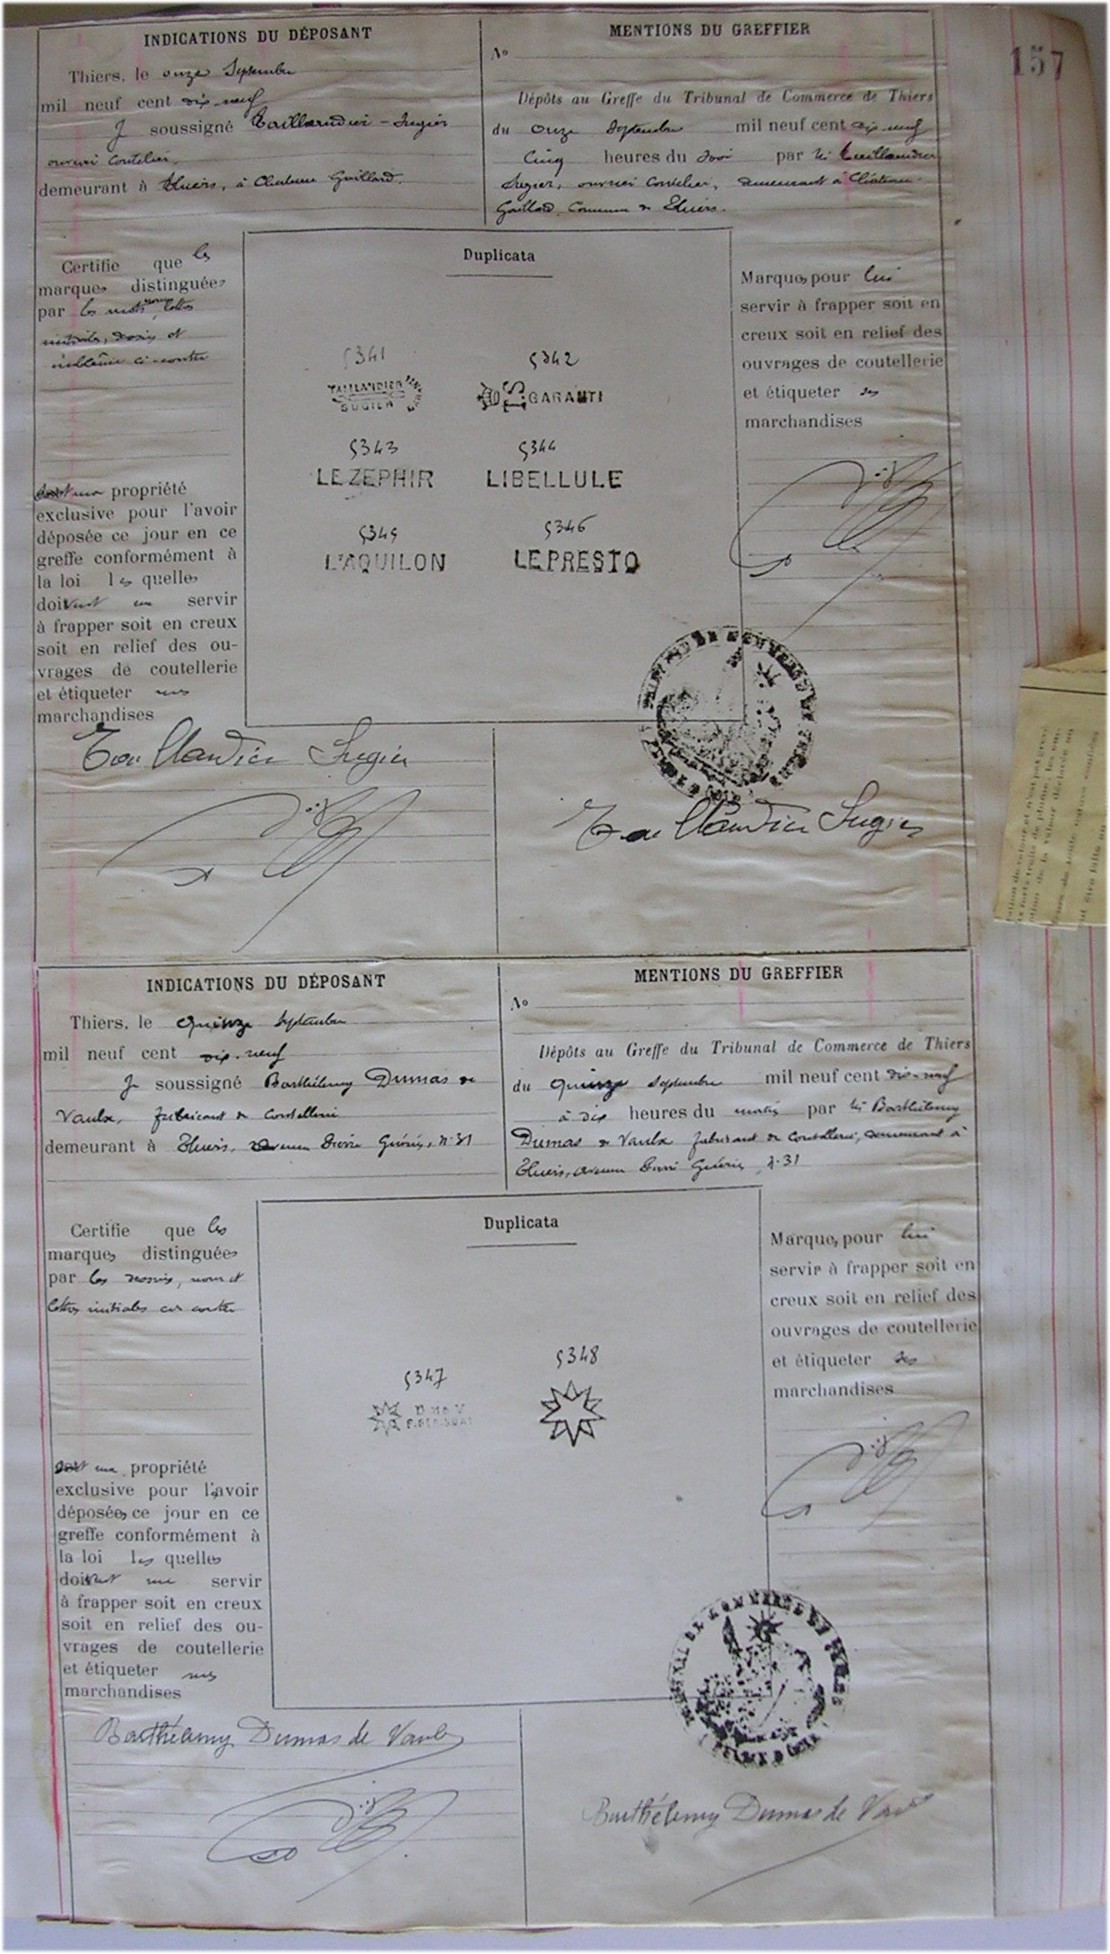 157
INDICATIONS DU DÉPOSANT
Thiers, le onze Septembre
mil neuf cent dix-neuf
Je soussigné Taillandier-Sugier
ouvrier coutelier.
demeurant à Thiers, à Château Gaillard.
MENTIONS DU GREFFIER
No
Dépôts au Greffe du Tribunal de Commerce de Thiers
du onze Septembre mil neuf cent dix-neuf
Cinq heures du soir par M. Taillandier
Sugier, ouvrier coutelier, demeurant à Château-
Gaillard, Commune de Thiers.
Certifie que les
marques distinguées
par les mots, noms, lettres
initiales, dessins et
emblème ci-contre
sont ma propriété
exclusive pour l'avoir
déposée ce jour en ce
greffe conformément à
la loi les quelles
doivent me servir
à frapper soit en creux
soit en relief des ou-
vrages de coutellerie
et étiqueter mes
marchandises
Duplicata
5341
TAILLANDIER
SUGIER
5342
GARANTI
5343
LE ZEPHIR
5344
LIBELLULE
5345
L'AQUILON
5346
LE PRESTO
Marques pour lui
servir à frapper soit en
creux soit en relief des
ouvrages de coutellerie
et étiqueter ses
marchandises
Taillandier Sugier
Taillandier Sugier
INDICATIONS DU DÉPOSANT
Thiers, le quinze Septembre
mil neuf cent dix-neuf
Je soussigné Barthélemy Dumas de
Vaulx, fabricant de Coutellerie
demeurant à Thiers, avenue Pierre Guérin, n° 31
MENTIONS DU GREFFIER
No
Dépôts au Greffe du Tribunal de Commerce de Thiers
du quinze septembre mil neuf cent dix-neuf
à dix heures du matin par M. Barthélemy
Dumas de Vaulx fabricant de Coutellerie, demeurant à
Thiers, avenue Pierre Guérin, n° 31
Certifie que les
marques distinguées
par les dessins, noms et
lettres initiales ci-contre
sont ma propriété
exclusive pour l'avoir
déposées ce jour en ce
greffe conformément à
la loi les quelles
doivent me servir
à frapper soit en creux
soit en relief des ou-
vrages de coutellerie
et étiqueter mes
marchandises
Duplicata
5347
D. de V
5348
Marques pour lui
servir à frapper soit en
creux soit en relief des
ouvrages de coutellerie
et étiqueter ses
marchandises
Barthélemy Dumas de Vaulx
Barthélemy Dumas de Vaulx